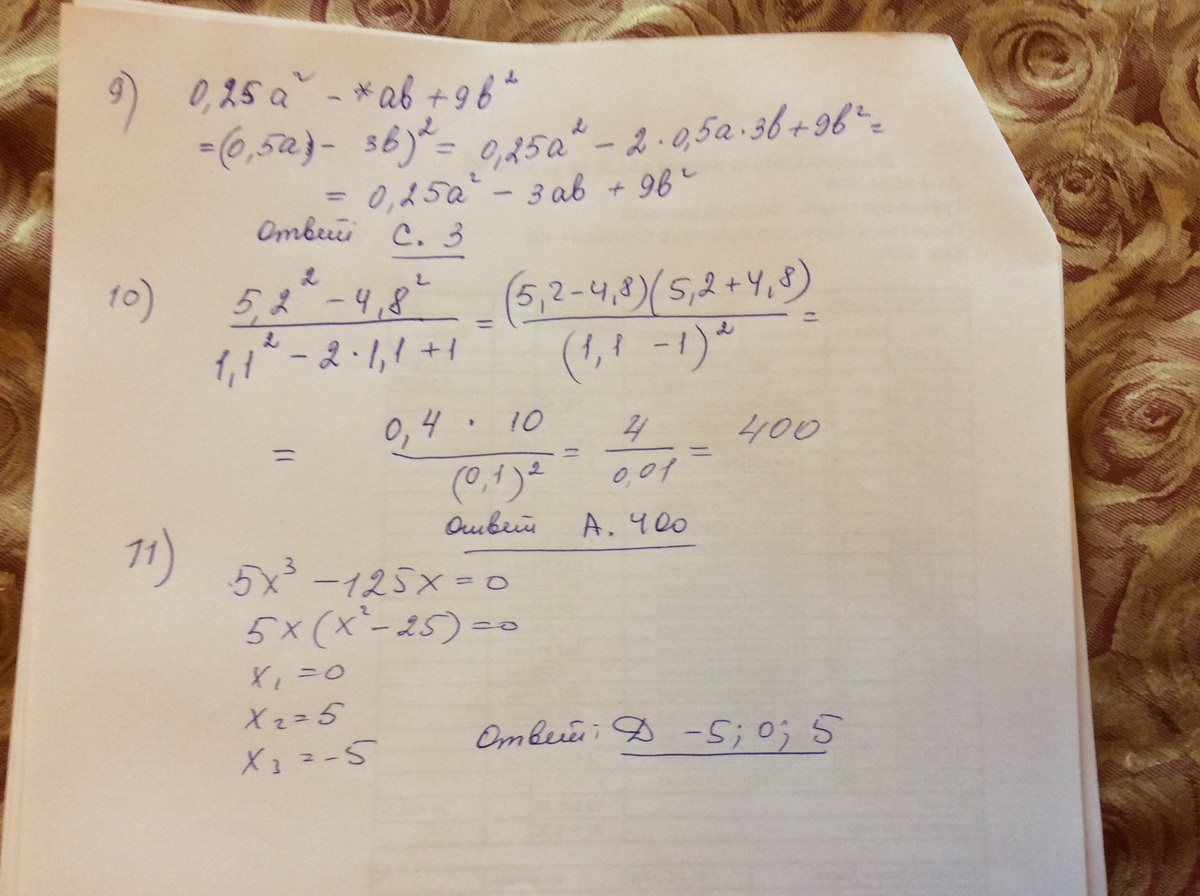 9) 0,25a² - *ab + 9b²
=(0,5a) - 3b)² = 0,25a² - 2·0,5a·3b + 9b² =
= 0,25a² - 3ab + 9b²
Ответ С. 3
10) (5,2² - 4,8²)/(1,1² - 2·1,1 + 1) = ((5,2-4,8)(5,2+4,8))/((1,1 - 1)²) =
= (0,4 · 10)/((0,1)²) = 4/0,01 = 400
Ответ А. 400
11)
5x³ - 125x = 0
5x(x² - 25) = 0
x₁ = 0
x₂ = 5
x₃ = -5
Ответ: Д -5; 0; 5